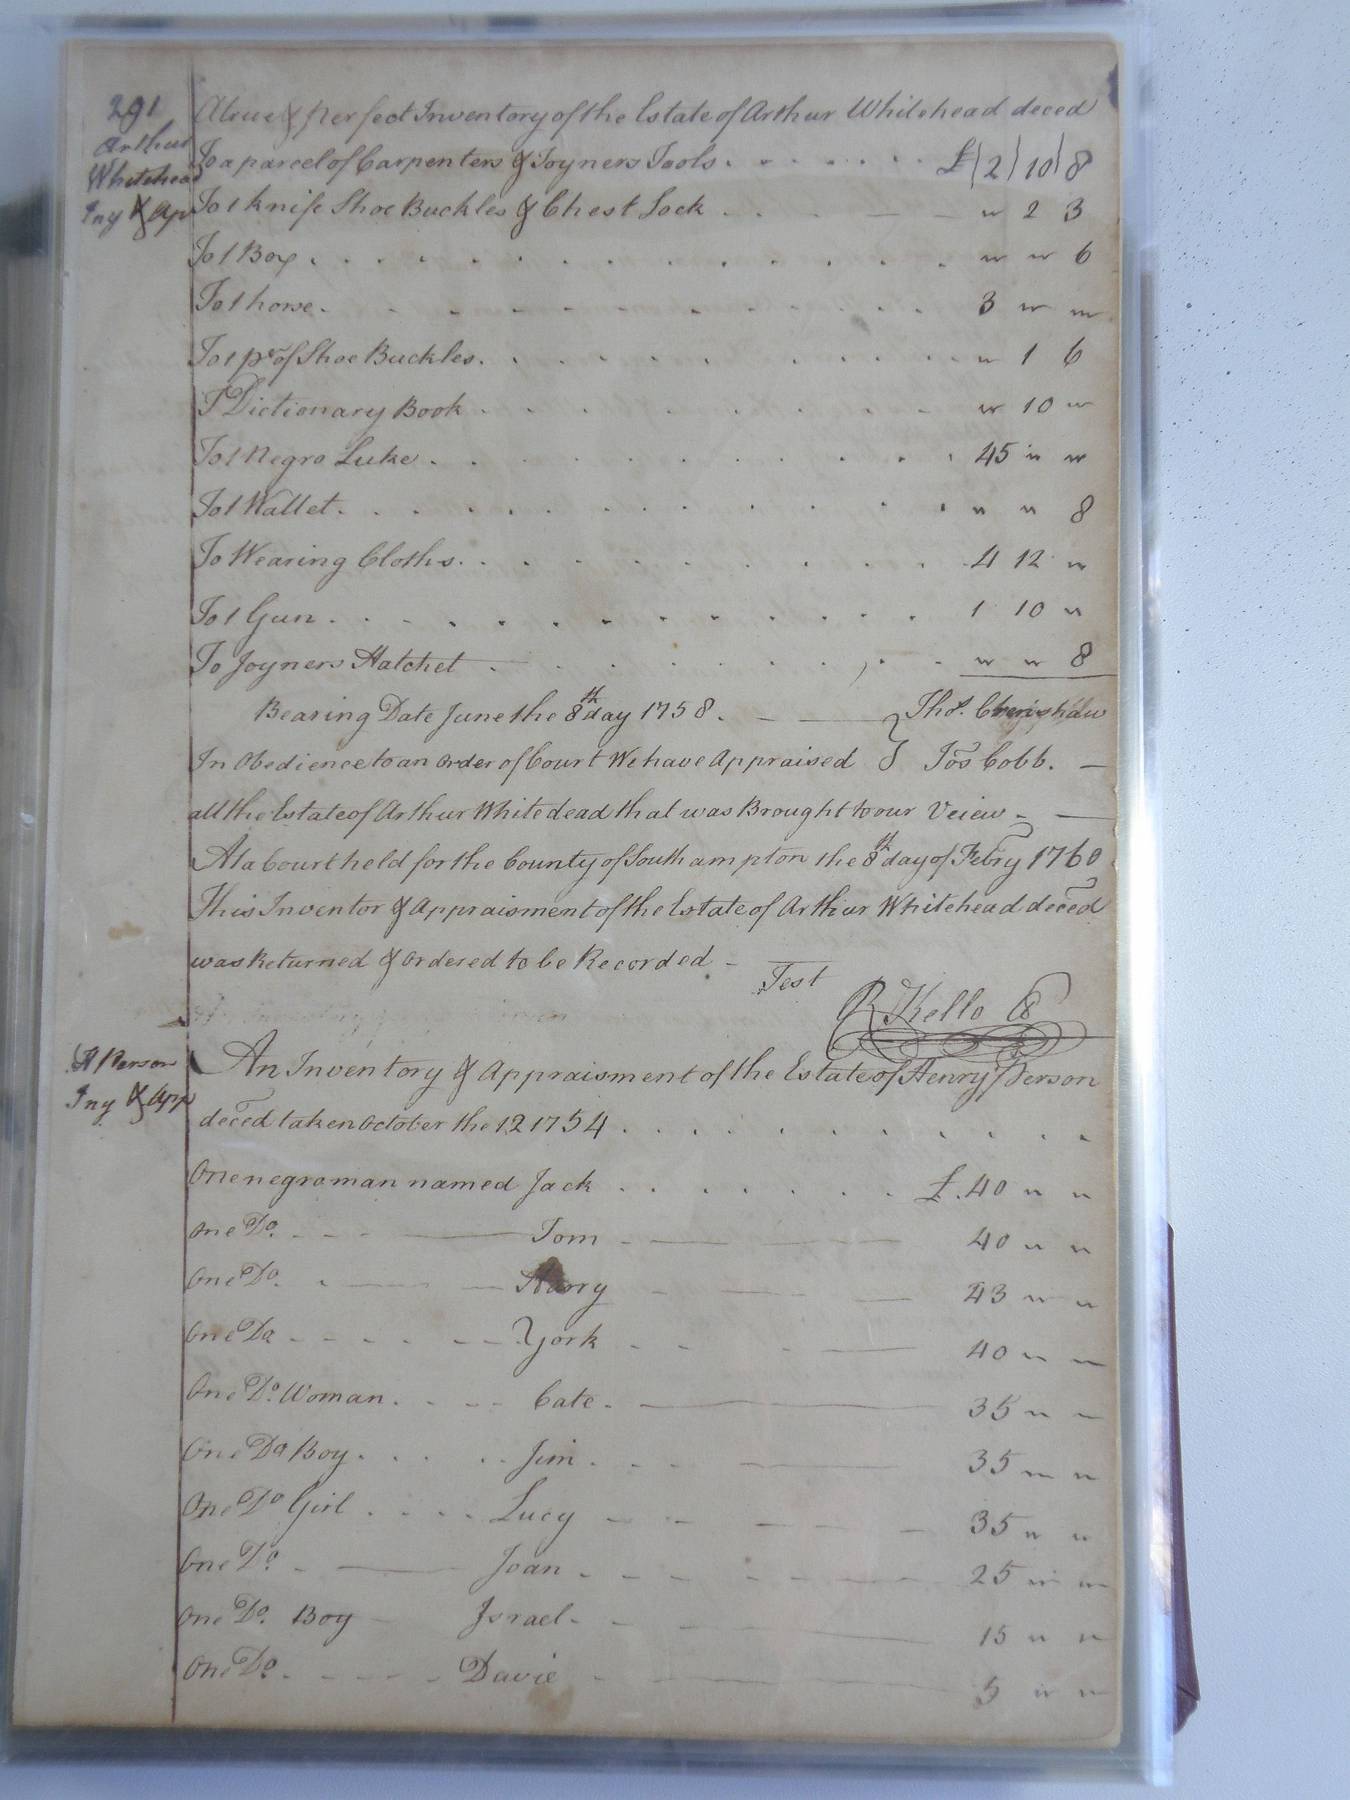 291
Arthur
Whitehead
Inv & Ap
A true & Perfect Inventory of the Estate of Arthur Whitehead deced
To a parcel of Carpenters & Joyners Tools . . . . . . £ 2 10 8
To 1 knife Shoe Buckles & Chest Lock . . . - - " 2 3
To 1 Box . . . . . . . . . . . . " " 6
To 1 horse . . . . . . . . . . . 3 " "
To 1 pr of Shoe Buckles . . . . . . . . . . " 1 6
1 Dictionary Book . . . . . . . . " 10 "
To 1 Negro Luke . . . . . . . . . . 45 " "
To 1 Wallet . . . . . . . . . . . " " 8
To Wearing Cloths . . . . . . . . . . 4 12 "
To 1 Gun . . . . . . . . . . . 1 10 "
To Joyners Hatchet . . . . . . . . " " 8
Bearing Date June the 8th day 1758 . - — Thos.
In Obedience to an order of Court We have Appraised } Jos Cobb. —
all the Estate of Arthur Whitedead that was Brought to our Veiew - —
At a Court held for the County of Southampton the 8th day of Febry 1760
This Inventor & Appraisment of the Estate of Arthur Whitehead deced
was Returned & ordered to be Recorded -
Test
R Kello
H Person
Inv & App
An Inventory & Appraisment of the Estate of Henry Person
deced taken October the 12 1754 . . . . . . . . . .
One negro man named Jack . . . . . . £. 40 " "
One Do. - - - — Tom - — — — 40 " "
One Do. - — — Harry - — — 43 " "
One Do - - - - - - York - - - — 40 " "
One Do. Woman . - - - Cate - — 35 " "
One Do Boy . . . . . Jim . - - — 35 " "
One Do Girl . . . . Lucy - - — - 35 " "
One Do. - — Joan - - - - - - 25 " "
One Do. Boy — Israel - - - — 15 " "
One Do. - - - - - Davie - — — 5 " "